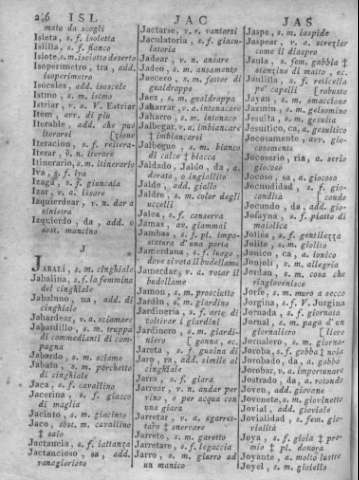 2,6 ISL
JAC
JAS
mato da scogli
Isleta, s. f. isoletta
Islilla, s. f. fianco
Islote, s. m. isolotto deserto
Isoperimetro, tra, add. isoperimetro
Isósceles, add. isoscele
Istmo, s. m. ismo
Istriar, v. a. V. Estriar
Item, adv. di più
Iterable, add. che può
iterarsi [zione
Iteracion, s. f. reitera-
Iterar, v. n. iterare
Itinerario, s. m. itinerario
Iva, s. f. iva
Izaga, s. f. giuncaia
Izar, v. a. issare
Izquierdear, v. n. dar a
sinistra
Izquierdo, da, add. e
sost. mancino
J
JABALÍ, s. m. cinghiale
Jabalina, s. f. la femmina
del cinghiale
Jabaluno, na, add. di
cinghiale
Jabardear, v. a. sciamare
Jabardillo, s. m. truppa
di commedianti di campagna
Jabardo, s. m. sciame
Jabato, s. m. porchetto
di cinghiale
Jaca, s. f. cavallino
Jacerina, s. f. giacco
di maglia
Jacinto, s. m. giacinto
Jaco, sbst. m. cavallino
‡ saio
Jactancia, s. f. iattanza
Jactancioso, sa, add.
vanaglorioso
Jactarse, v. r. vantarsi
Jaculatoria, s. f. giaculatoria
Jadear, v. n. aniare
Jadeo, s. m. ansamento
Jaecero, s. m. fattor di
gualdrappe
Jaez, s. m. gualdrappa
Jaharrar, v. a. intonacare
Jaharro, s. m. intonaco
Jalbegar, v. a. imbiancare
‡ imbiancarsi
Jalbegue, s. m. bianco
di calce ‡ biacca
Jaldado, Jaldo, da, a.
dorato, o ingiallito
Jalde, add. giallo
Jaldre, s. m. color degli
uccelli
Jalea, s. f. conserva
Jamas, av. giammai
Jambas, s. f. pl. impostatura d'una porta
Jamerdana, s. f. luogo
dove si vota il budellame
Jamerdar, v. a. votar il
budellame
Jamon, s. m. prosciutto
Jardin, s. m. giardino
Jardinería, s. f. arte di
coltivar i giardini
Jardinero, s. m. giardiniero [gonna, ec.
Jareta, s. f. guaina di
Jaro, ra, add. simile al
cinghiale
Jarra, s. f. giara
Jarrear, v. n. ander per
vino, e per acqua con
una giara
Jarretar, v. a. sgarrettare ‡ snervare
Jarrete, s. m. garetto
Jarretera, s. f. legaccia
Jarro, s. m. giarro ad
un manico
Jaspe, s. m. iaspide
Jaspear, v. a. screziar
come il diaspro
Jaula, s. f. gabbia ‡
stanzino di matto, ec.
po' capelli [robusta
Jayan, s. m. omaccione
Jazmin, s. m. gelsomino
Jesuita, s. m. gesuita
Jesuitico, ca, a. gesuitico
Jocosamente, av. giocosamente
Jocoserio, ria, a. serio
giocoso
Jocoso, sa, a. giocoso
Jocundo, da, add. giocondo
Jofayna, s. f. piatto di
maiolica
Jonico, ca, a. ionico
Jonjoli, s. m. allegria
Jordan, s. m. cosa che
ringiovenisce
Jorfe, s. m. muro a secco
Jorgina, s. f. V. Jurgina
Jornada, s. f. giornata
Jornal, s. m. paga d'un
giornaliero [liero
Jornalero, s. m. giorna-
Joroba, s. f. gobba ‡ noia
Jorobado, da, a. gobbo
Jorobar, v. a. importunare
Jostrado, da, a. rotondo
Joven, add. giovene
Jovenete, s. m. giovinetto
Jovial, add. gioviale
Jovialidad, s. fem. giovialità
Joya, s. f. gioia ‡ premio ‡ pl. donora
Joyante, add. molto lustro
Joyel, s. m. gioiello